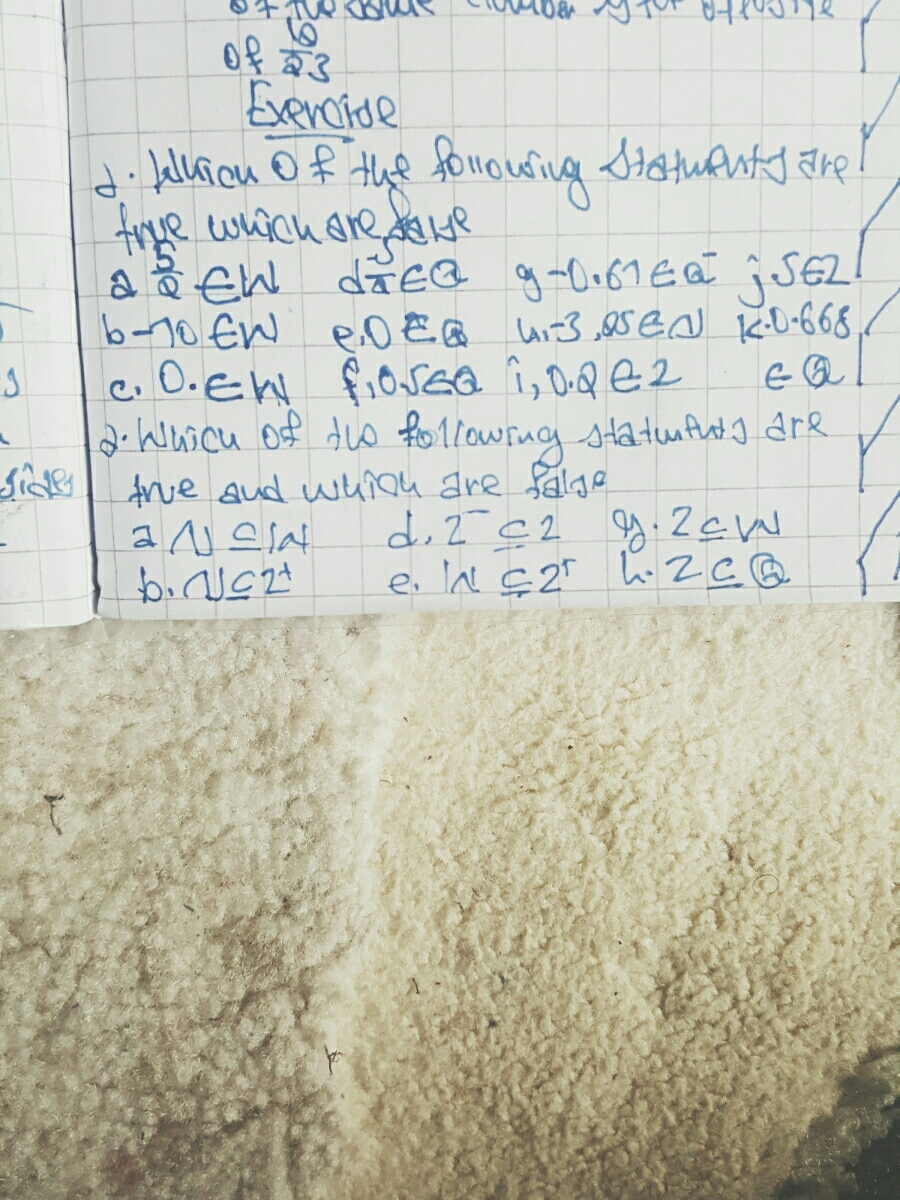 of the same number
of 6/23
Exercise
1. Which of the following statements are
true which are false
a 5/2 ∈ W d ∈ Q g -0.67 ∈ Q⁻ j. 5 ∈ Z
b -10 ∈ W e. 0 ∈ Q h. -3, 25 ∈ N k. 0.668
c. 0. ∈ W f, 0.5 ∈ Q i, 0.2 ∈ Z ∈ Q
2. Which of the following statements are
true and which are false
a N ⊆ W d. Z⁻ ⊆ Z g. Z ⊆ W
b. N ⊆ Z⁺ e. W ⊆ Z⁺ h. Z ⊆ Q